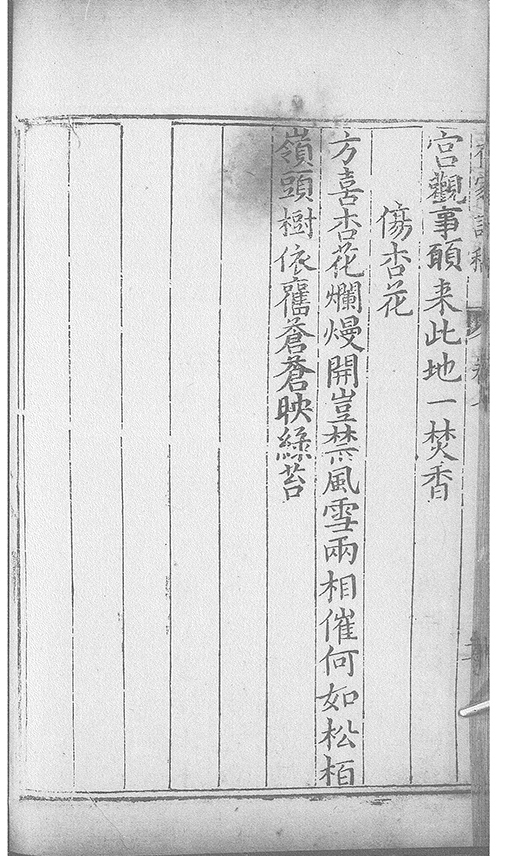 宫觀事頋来此地一焚香
傷杏花
方喜杏花爛熳開豈禁風雪兩相催何如松栢
嶺頭樹依舊蒼蒼映綠苔